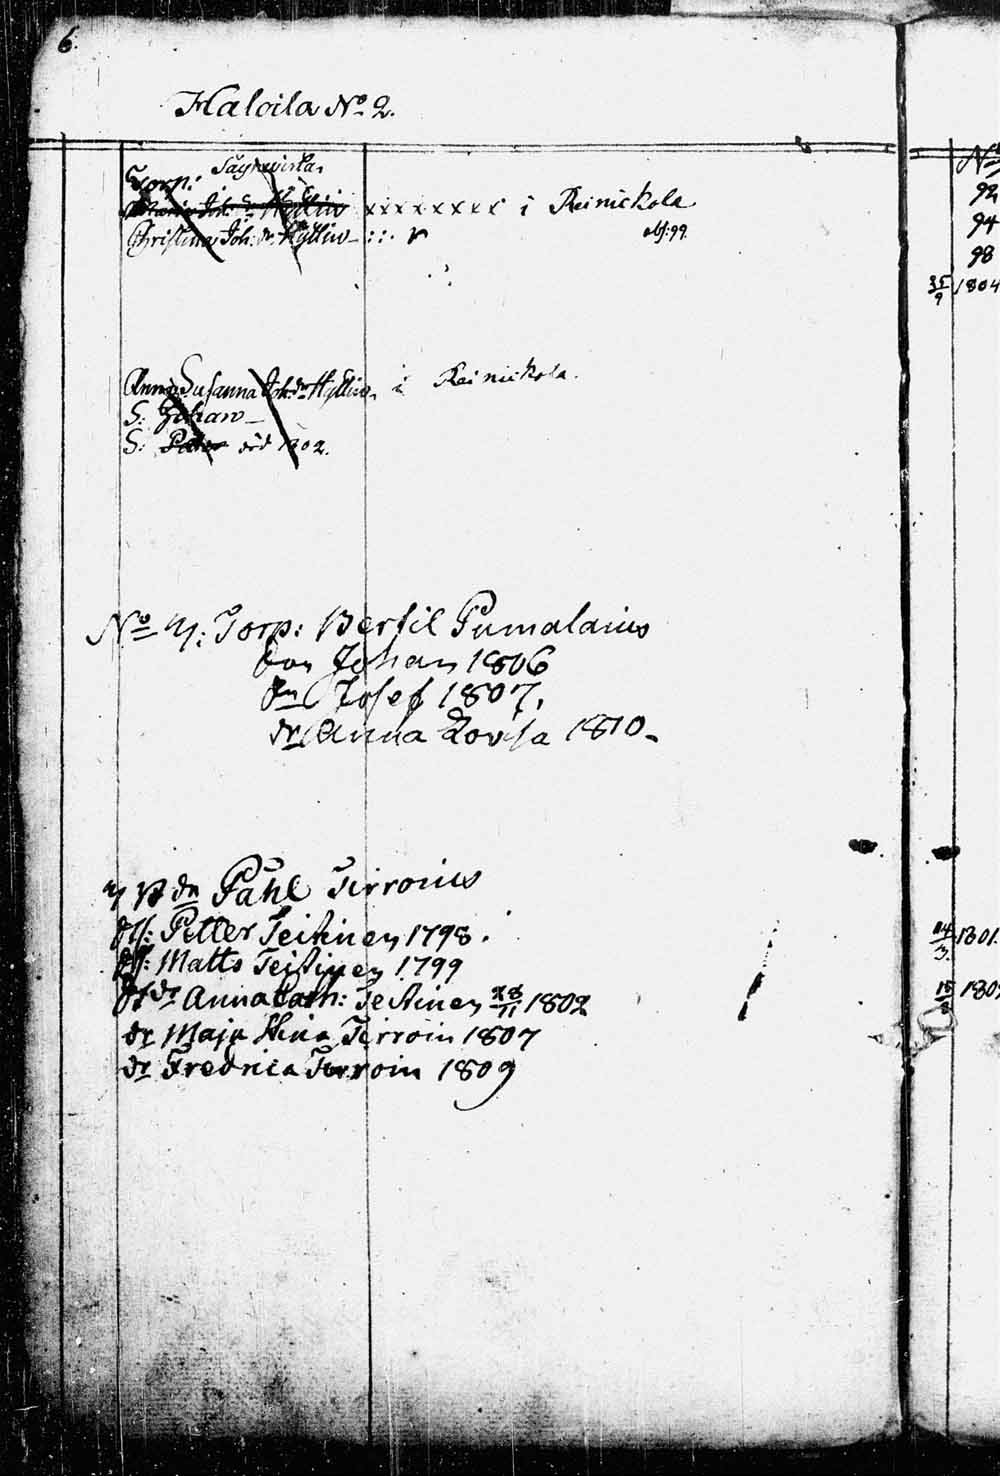 6.
Haloila No 2.
Torp:
Joh: dr Hyllin xxxxxxxx i Reinickola
Christina Joh: dr Hyllin
obf: 99.
Anna Susanna Joh: dr Hyllin i Reinickola.
S: Johan
S: Petter död 1802.
No 4: Torp: Bertil Pumalainen
son Johan 1806
sn Josef 1807.
dr Anna Lovisa 1810
Påhl Tirroinen
Petter Teitinen 1798.
Matts Teitinen 1799
dr Anna Cath: Teitinen 28/11 1802
dr Maja Stina Tirroin 1807
dr Fredrica Tirroin 1809
No
92
94
98
1804
14/3 1801.
180